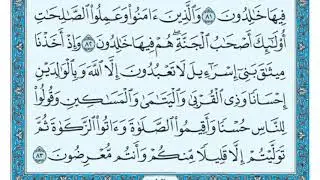 فِيهَا خَٰلِدُونَ ۝٨١ وَٱلَّذِينَ ءَامَنُوا۟ وَعَمِلُوا۟ ٱلصَّٰلِحَٰتِ
أُو۟لَٰٓئِكَ أَصْحَٰبُ ٱلْجَنَّةِ ۖ هُمْ فِيهَا خَٰلِدُونَ ۝٨٢ وَإِذْ أَخَذْنَا
مِيثَٰقَ بَنِىٓ إِسْرَٰٓءِيلَ لَا تَعْبُدُونَ إِلَّا ٱللَّهَ وَبِٱلْوَٰلِدَيْنِ
إِحْسَانًا وَذِى ٱلْقُرْبَىٰ وَٱلْيَتَٰمَىٰ وَٱلْمَسَٰكِينِ وَقُولُوا۟
لِلنَّاسِ حُسْنًا وَأَقِيمُوا۟ ٱلصَّلَوٰةَ وَءَاتُوا۟ ٱلزَّكَوٰةَ ثُمَّ
تَوَلَّيْتُمْ إِلَّا قَلِيلًا مِّنكُمْ وَأَنتُم مُّعْرِضُونَ ۝٨٣